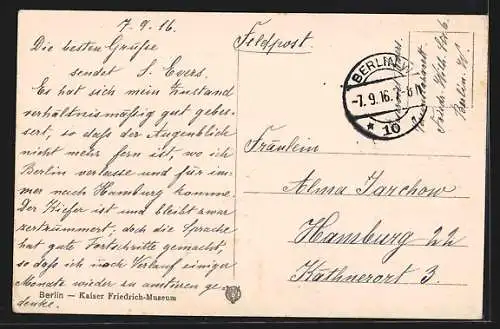 7.9.16.
Die besten Grüße
sendet S. Evers.
Es hat sich mein Zustand
verhältnismäßig gut gebes-
sert, so daß der Augenblick
nicht mehr fern ist, wo ich
Berlin verlasse und für im-
mer nach Hamburg komme.
Der Kiefer ist und bleibt zwar
zertrümmert, doch die Sprache
hat gute Fortschritte gemacht,
so daß ich nach Verlauf einiger
Monate wieder zu amtiren ge-
denke.
Berlin — Kaiser Friedrich-Museum
Feldpost.
BERLIN
-7.9.16.
* 10
Berlin. N.
Fräulein
Alma Jarchow
Hamburg 22
Käthnerort 3.